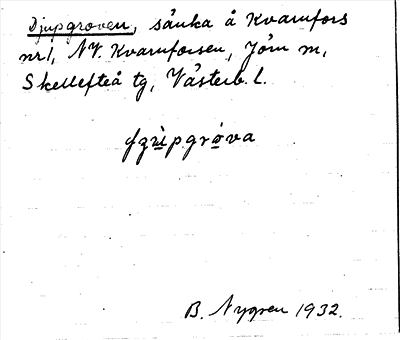 Djupgroven, sänka å Kvarnfors
nr 1, NV. Kvarnforsen, Jörn m,
Skellefteå tg, Västerb. l.
B. Nygren 1932.